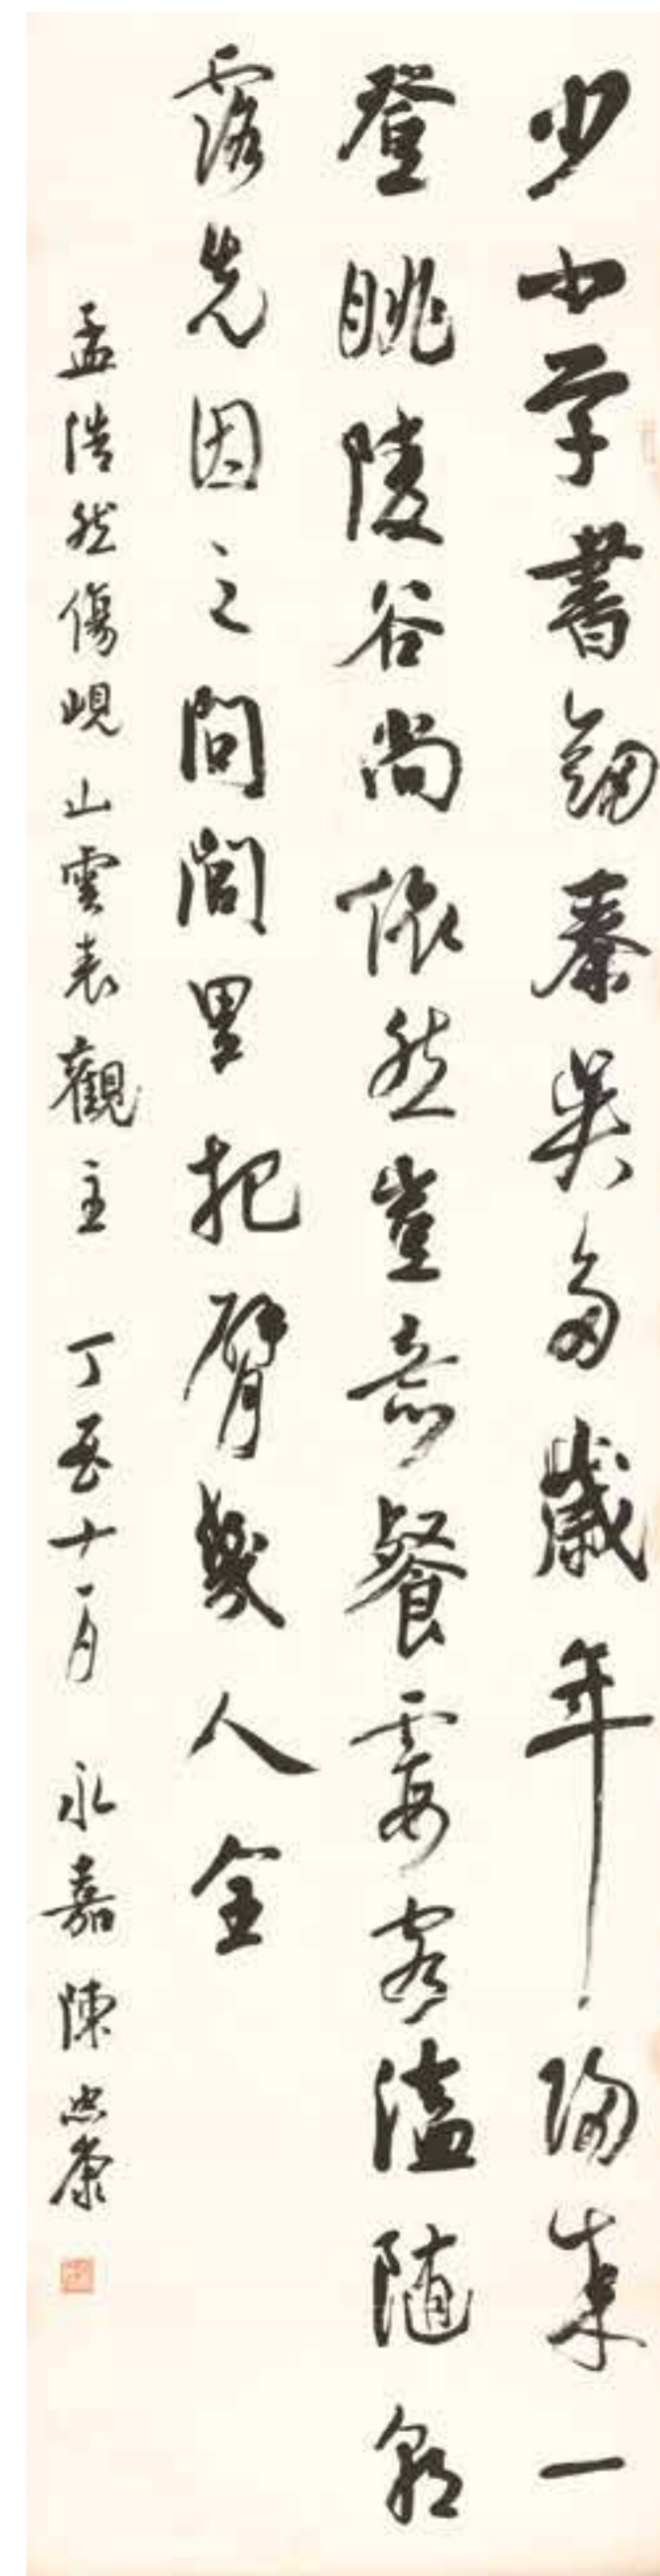 少小学書劍秦吴多歲年歸来一
登眺陵谷尚依然豈意餐霞客溘随朝
露先因之問閭里把臂幾人全
孟浩然傷峴山雲表觀主 丁丑十一月 永嘉陳忠康